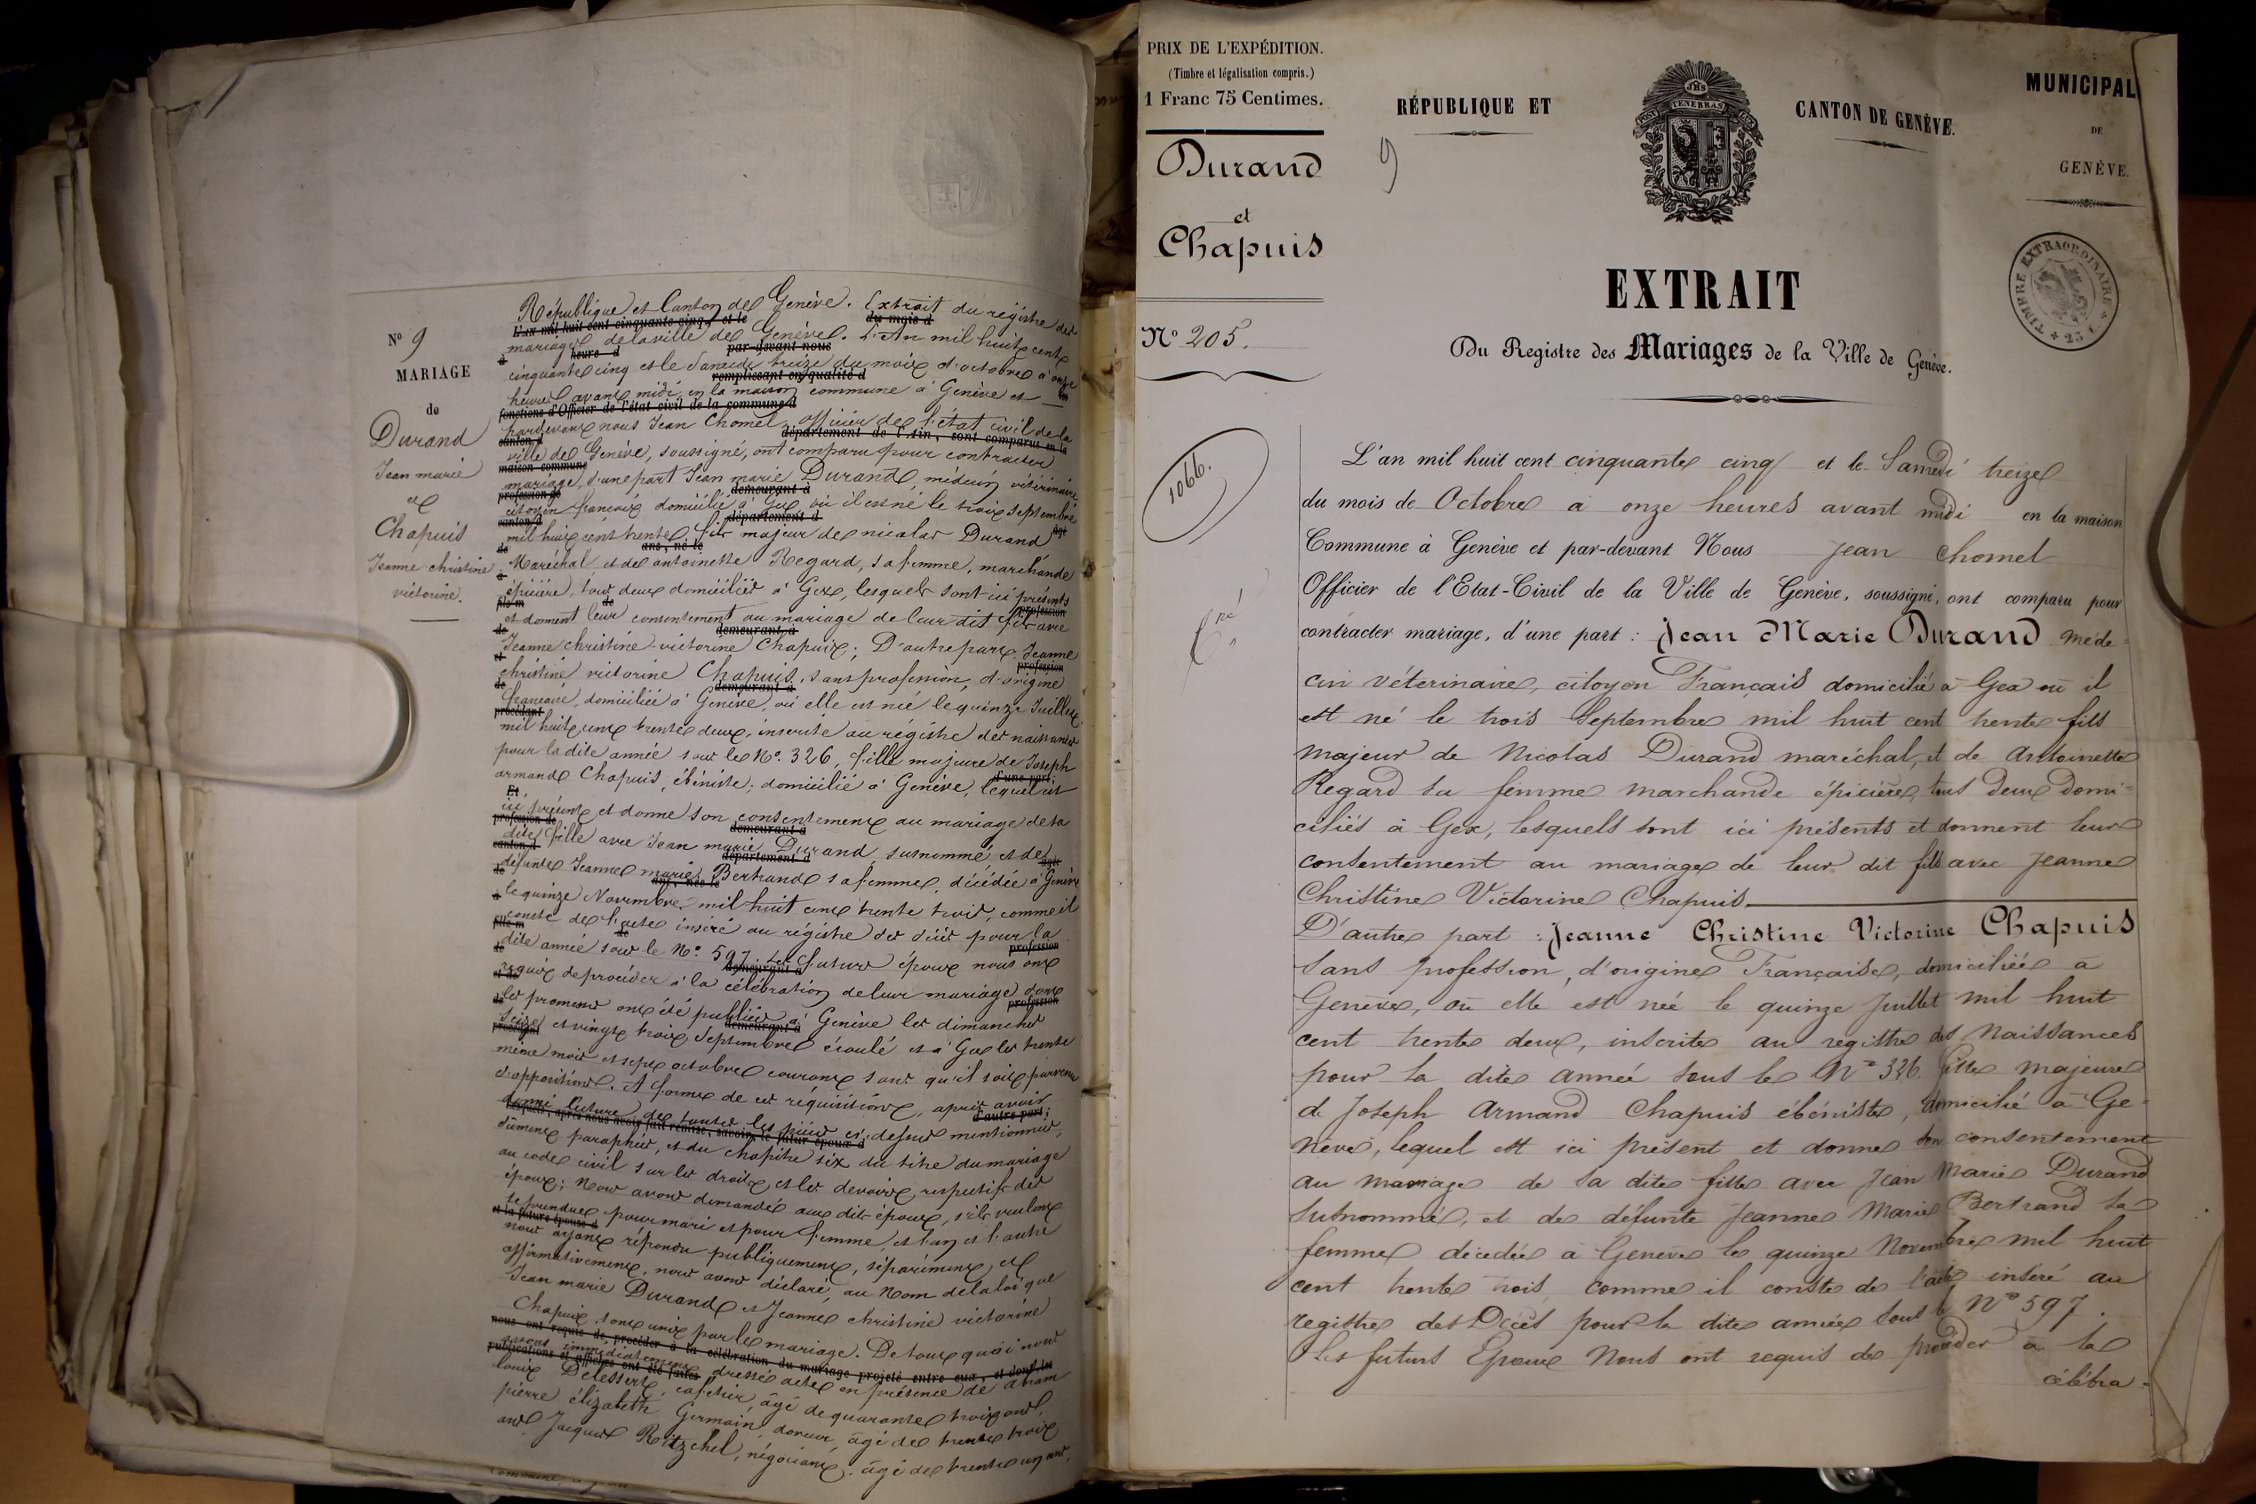 Nº 9
MARIAGE
de
Durand
Jean marie
et
Chapuis
Jeanne christine
victorine.
République et Canton de Genève. Extrait du registre des
mariages de la ville de Genève. L'An mil huit cent
cinquante cinq et le Samedi treize du mois d'octobre à onze
heures avant midi, en la maison commune à Genève et
pardevant nous Jean Chomel, officier de l'état civil de la
ville de Genève, soussigné, ont comparu pour contracter
mariage, d'une part Jean marie Durand, médecin vétérinaire
citoyen français domicilié à Gex où il est né le trois septembre
mil huit cent trente, fils majeur de nicolas Durand
Maréchal et de antoinette Regard, sa femme, marchande
épicière, tous deux domiciliés à Gex, lesquels sont ici présents
et donnent leur consentement au mariage de leur dit fils avec
Jeanne christine victorine Chapuis; D'autre part Jeanne
christine victorine Chapuis, sans profession, d'origine
française, domiciliée à Genève, où elle est née le quinze Juillet
mil huit cent trente deux, inscrite au régistre des naissances
pour la dite année sous le Nº. 326, fille majeure de Joseph
armand Chapuis, ébéniste, domicilié à Genève, lequel est
ici présent et donne son consentement au mariage de sa
dite fille avec Jean marie Durand susnommé et de
défunte Jeanne marie Bertrand sa femme, décédée à Genève
le quinze Novembre mil huit cent trente trois, comme il
conste de l'acte inséré au régistre des décès pour la
dite année sous le Nº. 597. Les futurs époux nous ont
requis de procéder à la célébration de leur mariage dont
les promesses ont été publiées à Genève les dimanches
seize et vingt trois Septembre écoulé et à Gex les trente
même mois et sept octobre courant sans qu'il soit parvenu
d'opposition. A forme de ces réquisitions, après avoir
donné lecture de toutes les pièces ci-dessus mentionnées,
dûment paraphées, et du chapitre six du titre du mariage
au code civil sur les droits et les devoirs respectifs des
époux; Nous avons demandé aux dits époux, s'ils veulent
se prendre pour mari et pour femme, et l'un et l'autre
nous ayant répondu publiquement, séparément, et
affirmativement, nous avons déclaré, au Nom de la loi que
Jean marie Durand et Jeanne christine victorine
Chapuis, sont unis par le mariage. De tout quoi nous
avons immédiatement dressé acte en présence de abram
louis Delessert, cafetier, âgé de quarante trois ans,
pierre élizabeth Germain, doreur, âgé de trente trois
ans, Jacques Ritzchel, négociant, âgé de trente un ans,
PRIX DE L'EXPÉDITION.
(Timbre et légalisation compris.)
1 Franc 75 Centimes.
Durand
et
Chapuis
Nº 205.
1066.
9
RÉPUBLIQUE ET
CANTON DE GENÈVE.
JHS
POST TENEBRAS LUX
MUNICIPAL
DE
GENÈVE.
TIMBRE EXTRAORDINAIRE
EXTRAIT
Du Registre des Mariages de la Ville de Genève.
L'an mil huit cent cinquante cinq et le Samedi treize
du mois de Octobre à onze heures avant midi en la maison
Commune à Genève et par-devant Nous Jean Chomel
Officier de l'Etat-Civil de la Ville de Genève, soussigné, ont comparu pour
contracter mariage, d'une part : Jean Marie Durand méde-
cin véterinaire, citoyen Français domicilié à Gex où il
est né le trois Septembre mil huit cent trente fils
majeur de Nicolas Durand maréchal, et de Antoinette
Regard sa femme marchande épicière, tous deux domi-
ciliés à Gex, lesquels sont ici présents et donnent leur
consentement au mariage de leur dit fils avec Jeanne
Christine Victorine Chapuis
D'autre part : Jeanne Christine Victorine Chapuis
sans profession, d'origine Française, domiciliée à
Genève, où elle est née le quinze Juillet mil huit
cent trente deux, inscrite au registre des Naissances
pour la dite année sous le Nº 326. fille majeure
de Joseph Armand Chapuis ébéniste, domicilié à Ge-
nève, lequel est ici présent et donne son consentement
au mariage de sa dite fille avec Jean Marie Durand
susnommé, et de défunte Jeanne Marie Bertrand sa
femme décédée à Genève le quinze Novembre mil huit
cent trente trois, comme il conste de l'acte inséré au
registre des Décès pour la dite année sous le Nº 597.
Les futurs Epoux Nous ont requis de procéder à la
célébra-